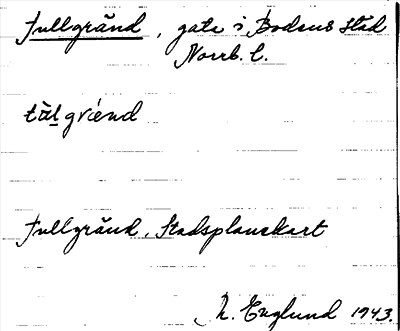 Tullgränd, gata i Bodens stad
Norrb. l.
tùl̲ grénd
Tullgränd, Stadsplanekart
N. Englund 1943.